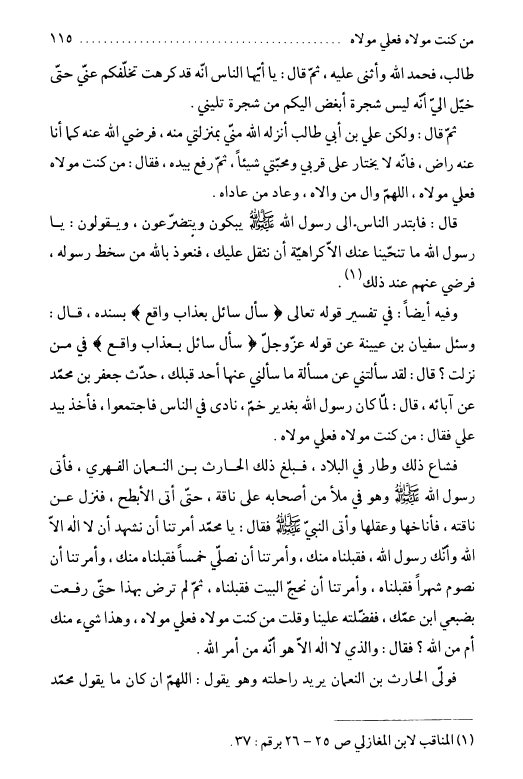 من كنت مولاه فعلي مولاه ........................................ ١١٥
طالب، فحمد الله وأثنى عليه ، ثمّ قال : يا أيّها الناس انّه قد كرهت تخلّفكم عنّي حتّى
خيّل اليّ أنّه ليس شجرة أبغض اليكم من شجرة تليني .
ثمّ قال : ولكن علي بن أبي طالب أنزله الله منّي بمنزلتي منه ، فرضي الله عنه كما أنا
عنه راض ، فانّه لا يختار على قربي ومحبّتي شيئاً ، ثمّ رفع بيده ، فقال : من كنت مولاه
فعلي مولاه ، اللهمّ وال من والاه ، وعاد من عاداه .
قال : فابتدر الناس الى رسول الله ﷺ يبكون ويتضرّعون ، ويـقولون : يـا
رسول الله ما تنحّينا عنك الاّ كراهيّة أن نثقل عليك ، فنعوذ بالله من سخط رسوله ،
فرضي عنهم عند ذلك (١) .
وفيه أيضاً : في تفسير قوله تعالى ﴿ سأل سائل بعذاب واقع ﴾ بسنده ، قـال :
وسئل سفيان بن عيينة عن قوله عزّوجلّ ﴿ سأل سائل بـعذاب واقـع ﴾ في مـن
نزلت ؟ قال : لقد سألتني عن مسألة ما سألني عنها أحد قبلك ، حدّث جعفر بن محمّد
عن آبائه ، قال : لمّا كان رسول الله بغدير خمّ ، نادى في الناس فاجتمعوا ، فأخذ بيد
علي فقال : من كنت مولاه فعلي مولاه .
فشاع ذلك وطار في البلاد ، فـبلغ ذلك الحـارث بـن النـعمان الفـهري ، فأتى
رسول الله ﷺ وهو في ملأ من أصحابه على ناقة ، حتّى أتى الأبطح ، فنزل عـن
ناقته ، فأناخها وعقلها وأتى النبيّ ﷺ فقال : يا محمّد أمرتنا أن نشهد أن لا اله الاّ
الله وأنّك رسول الله ، فقبلناه منك ، وأمرتنا أن نصلّي خمساً فقبلناه منك ، وأمرتنا أن
نصوم شهراً فقبلناه ، وأمرتنا أن نحجّ البيت فقبلناه ، ثمّ لم ترض بهذا حتّى رفـعت
بضبعي ابن عمّك ، ففضّلته علينا وقلت من كنت مولاه فعلي مولاه ، وهذا شيء منك
أم من الله ؟ فقال : والذي لا اله الاّ هو أنّه من أمر الله .
فولّى الحارث بن النعمان يريد راحلته وهو يقول : اللهمّ ان كان ما يقول محمّد
(١) المناقب لابن المغازلي ص ٢٥ – ٢٦ برقم : ٣٧ .